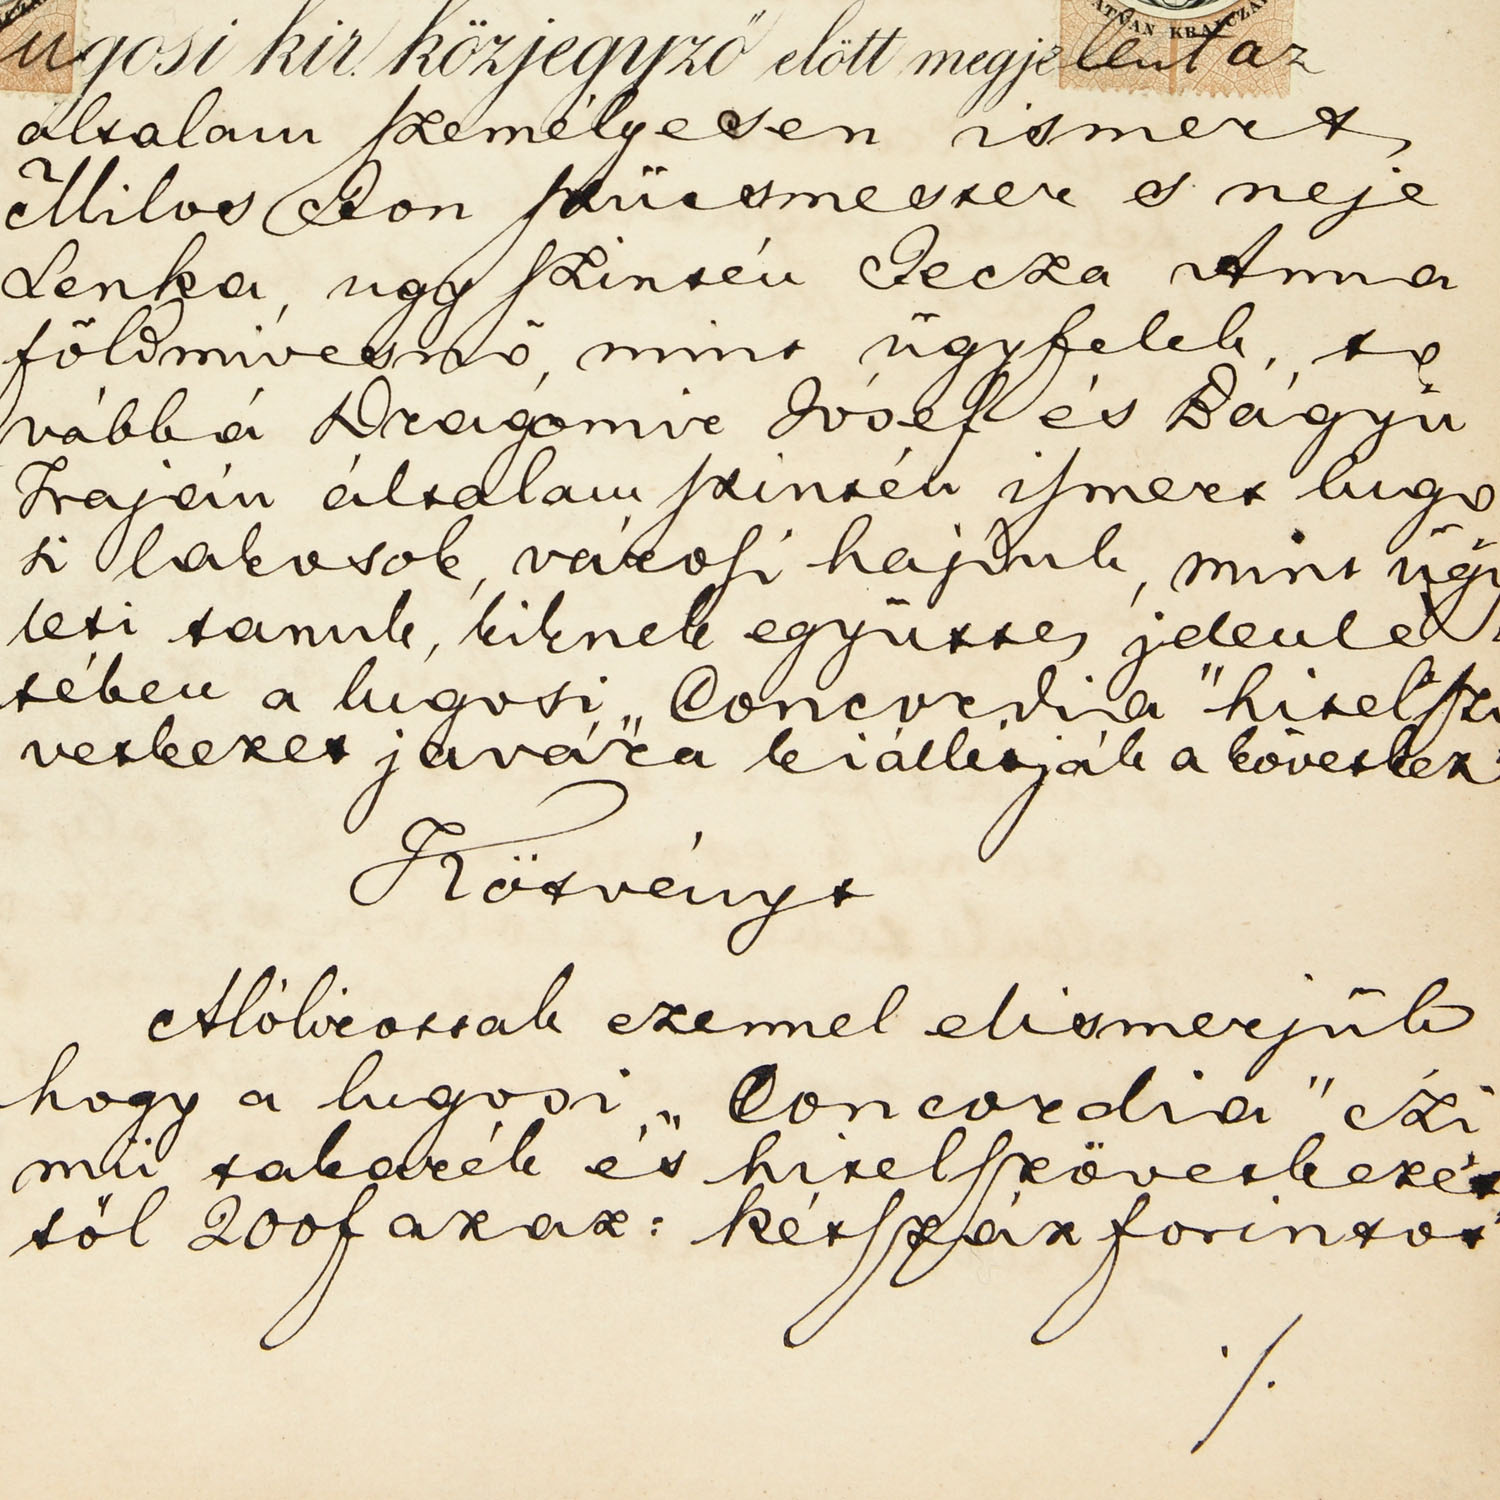 ugosi kir. közjegyző előtt megjelent az
ATVAN KRAJCZÁR
általam személyesen ismert,
Milos Ion szűcsmester s neje
Lenka, ugy szintén Pecza Anna
földmivesnő, mint ügyfelek, to
vábbá Dragomir József és Bágyu
Traján általam szintén ismert lugo
si lakosok, városi hajduk, mint ügy
leti tanuk, kiknek együttes jelenlé
tében a lugosi „Concordia" hitelszö
vetkezet javára kiállitják a következő
Kötvényt
Alólirottak ezennel elismerjük
hogy a lugosi „Concordia" czi
mü takarék és hitelszövetkezet
től 200f azaz: kétszáz forintot
./.